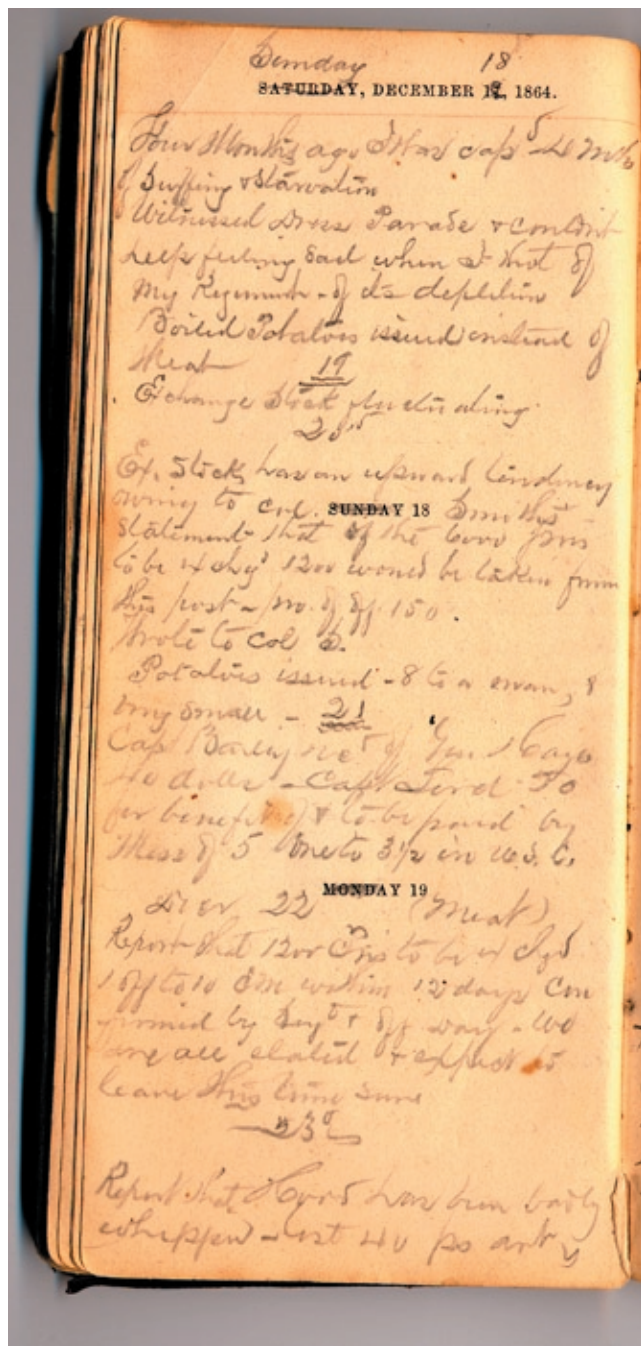 Sunday 18
SATURDAY, DECEMBER 17, 1864.
Four Months ago I was cap'd - 4 mths
of Suffing & Starvation
Witnessed Dress Parade & couldn't
keep feeling sad when I thot of
My Regiment - of its depletion
Boiled Potatoes issued instead of
Meat 19
Exchange Stock fluctuating
20th
Ex. Stock has an upward tendency
owing to Col. SUNDAY 18 Smith's
statement that of the 6000 pris
to be exchgd 1200 would be taken from
this post - pro. of off 150.
Wrote to Col S.
Potatoes issued - 8 to a man, &
very small - 21
Capt rec'd of Gen. Hays
40 dolls - Capt 50
for benefit of & to be paid by
Mess of 5 one to 3½ in U.S.C.
MONDAY 19
22 (Meat)
Report that 1200 Pris to be exchgd
1 off to 10 EM within 12 days Con
firmed by Sergt & off Day - We
are all elated & expect to
leave this time sure
23d
Report that Hood has been badly
whipped - lost 40 ps arty